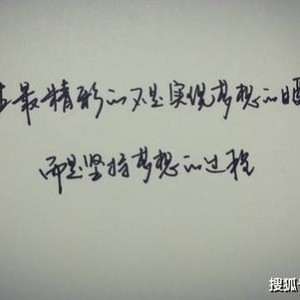 最精彩的不是实现梦想的
而是坚持梦想的过程
搜狐